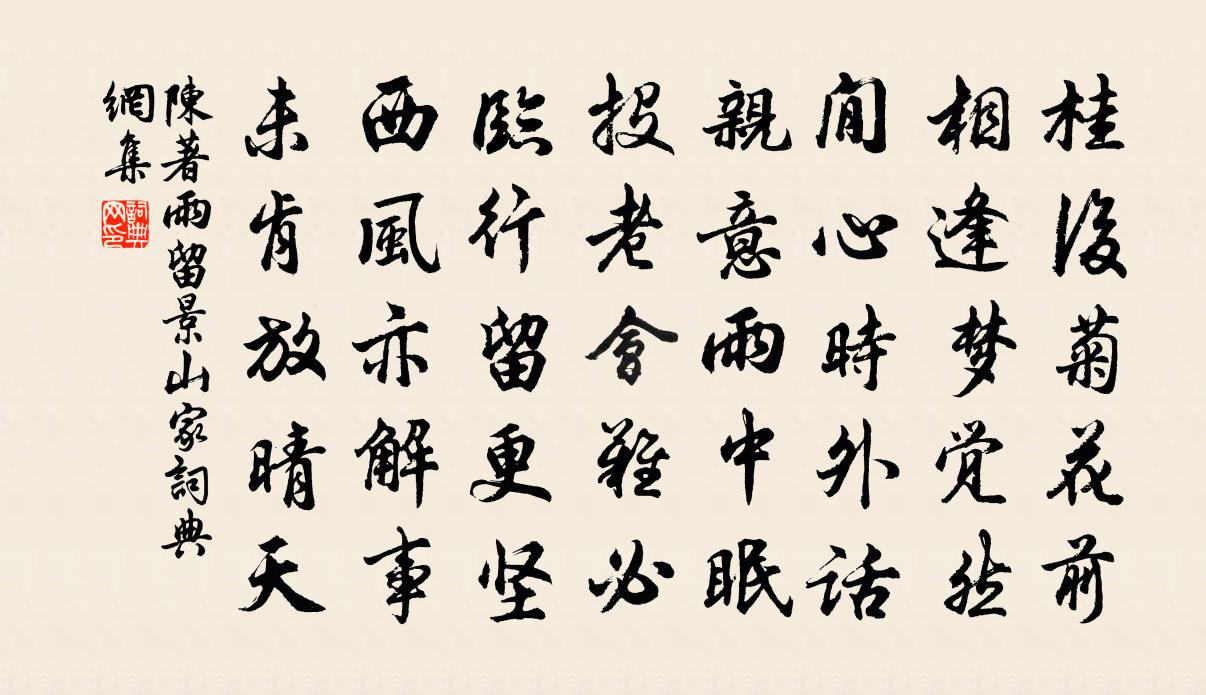 桂後菊花前
相逢梦觉然
閒心時外话
親意雨中眠
投老會難必
臨行留更坚
西風亦解事
未肯放晴天
陳著雨留景山家詞典
網集
詞典網印